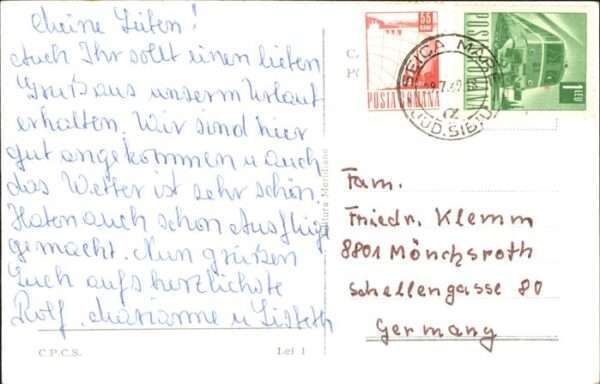 Meine Lieben!
Auch Ihr sollt einen lieben
Gruß aus unserm Urlaub
erhalten. Wir sind hier
gut angekommen u auch
das Wetter ist sehr schön.
Haben auch schon Ausflüge
gemacht. Nun grüßen
Euch aufs herzlichste
Rolf, Marianne u Lisbeth
C.P.C.S.
Lei 1
55
BANI
POSTA ROMINA
1
LEU
POSTA ROMINA
SEICA MARE
JUD. SIBIU
Fam.
Friedr. Klemm
8801 Mönchsroth
Schellengasse 80
Germany